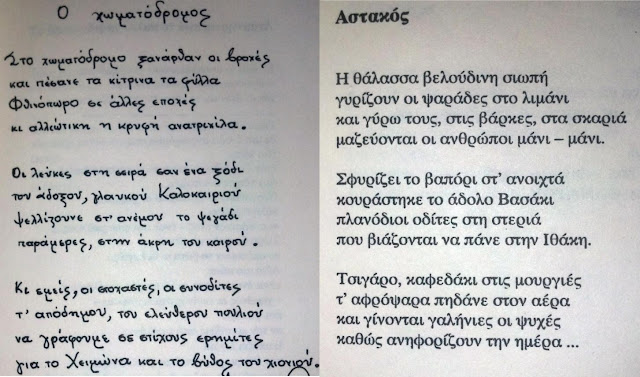 Ο χωματόδρομος
Στο χωματόδρομο ξανάρθαν οι βροχές
και πέσανε τα κίτρινα τα φύλλα
Φθινόπωρο σε άλλες εποχές
κι αλλιώτικη η κρυφή ανατριχίλα.
Οι λεύκες στη σειρά σαν ένα ξόδι
του άδοξου, γλαυκού Καλοκαιριού
ψελλίζουνε στ' ανέμου το ψεγάδι
παράμερες, στην άκρη του καιρού.
Κι εμείς, οι στοχαστές, οι συνοδίτες
τ' απόδημου, του ελεύθερου πουλιού
να γράφουμε σε στίχους ερημίτες
για το Χειμώνα και το βύθος του χιονιού.
Αστακός
Η θάλασσα βελούδινη σιωπή
γυρίζουν οι ψαράδες στο λιμάνι
και γύρω τους, στις βάρκες, στα σκαριά
μαζεύονται οι ανθρώποι μάνι – μάνι.
Σφυρίζει το βαπόρι στ' ανοιχτά
κουράστηκε το άδολο Βασάκι
πλανόδιοι οδίτες στη στεριά
που βιάζονται να πάνε στην Ιθάκη.
Τσιγάρο, καφεδάκι στις μουργιές
τ' αφρόψαρα πηδάνε στον αέρα
και γίνονται γαλήνιες οι ψυχές
καθώς ανηφορίζουν την ημέρα ...